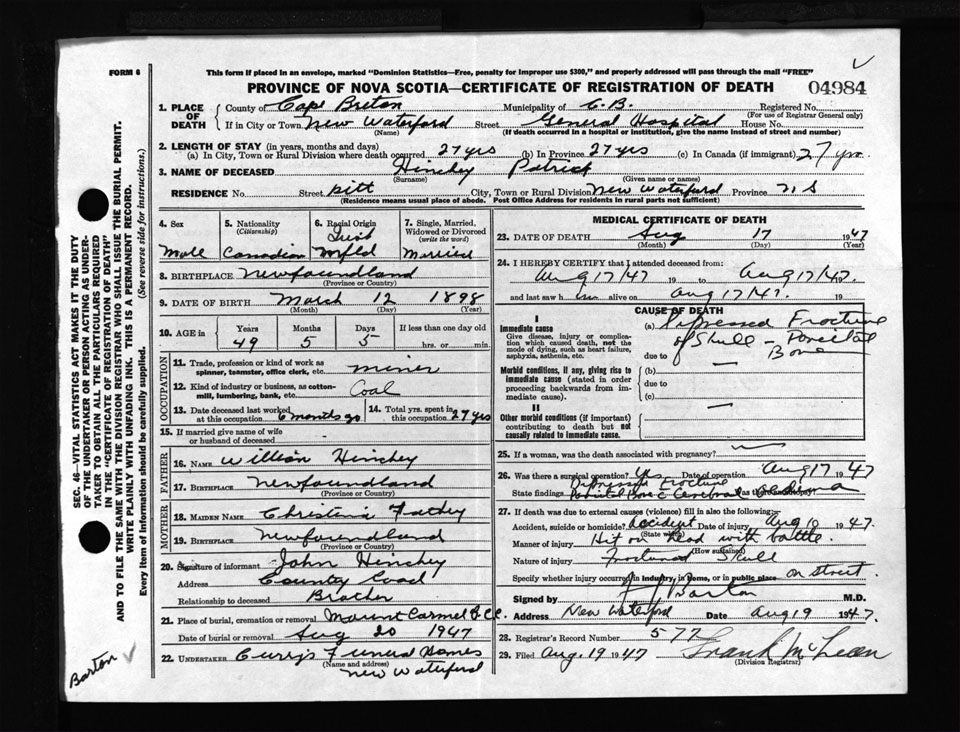 FORM 6
This form if placed in an envelope, marked "Dominion Statistics—Free, penalty for improper use $300," and properly addressed will pass through the mail "FREE"
PROVINCE OF NOVA SCOTIA—CERTIFICATE OF REGISTRATION OF DEATH 04984
1. PLACE OF DEATH County of Cape Breton Municipality of C.B. Registered No.
(For use of Registrar General only)
If in City or Town New Waterford Street General Hospital House No.
(Name) (If death occurred in a hospital or institution, give the name instead of street and number)
2. LENGTH OF STAY (in years, months and days)
(a) In City, Town or Rural Division where death occurred 27 yrs (b) In Province 27 yrs (c) In Canada (if immigrant) 27 yrs.
3. NAME OF DECEASED Hinchey Patrick
(Surname) (Given name or names)
RESIDENCE No. Street Pitt City, Town or Rural Division New Waterford Province N S
(Residence means usual place of abode. Post Office Address for residents in rural parts not sufficient)
4. Sex Male
5. Nationality (Citizenship) Canadian
6. Racial Origin Irish Nfld
7. Single, Married, Widowed or Divorced (write the word) Married
8. BIRTHPLACE Newfoundland
(Province or Country)
9. DATE OF BIRTH March 12 1898
(Month) (Day) (Year)
10. AGE in Years 49 Months 5 Days 5 If less than one day old hrs. or min.
OCCUPATION
11. Trade, profession or kind of work as spinner, teamster, office clerk, etc. miner
12. Kind of industry or business, as cotton-mill, lumbering, bank, etc. Coal
13. Date deceased last worked at this occupation 6 months ago
14. Total yrs. spent in this occupation 27 yrs
15. If married give name of wife or husband of deceased
FATHER
16. NAME William Hinchey
17. BIRTHPLACE Newfoundland
(Province or Country)
MOTHER
18. MAIDEN NAME Christena Fathey
19. BIRTHPLACE Newfoundland
(Province or Country)
20. Signature of informant John Hinchey
Address County Road
Relationship to deceased Brother
21. Place of burial, cremation or removal Mount Carmel
Date of burial or removal Aug 20 1947
22. UNDERTAKER Curry's Funeral Homes
(Name and address)
New Waterford
MEDICAL CERTIFICATE OF DEATH
23. DATE OF DEATH Aug 17 1947
(Month) (Day) (Year)
24. I HEREBY CERTIFY that I attended deceased from:
Aug 17/47 19 to Aug 17/47. 19
and last saw him alive on Aug 17/47. 19
CAUSE OF DEATH
I
Immediate cause
Give disease, injury or complication which caused death, not the mode of dying, such as heart failure, asphyxia, asthenia, etc.
(a) Depressed Fracture of Skull — Parietal Bone
due to
Morbid conditions, if any, giving rise to immediate cause (stated in order proceeding backwards from immediate cause).
(b)
due to
(c)
II
Other morbid conditions (if important) contributing to death but not causally related to immediate cause.
25. If a woman, was the death associated with pregnancy?
26. Was there a surgical operation? Yes Date of operation Aug 17 1947
Depressed Fracture
State findings Parietal Bone & Cerebral oedema
27. If death was due to external causes (violence) fill in also the following:
Accident, suicide or homicide? Accident Date of injury Aug 10 1947.
(State which)
Manner of injury Hit on head with bottle.
(How sustained)
Nature of injury Fractured Skull
Specify whether injury occurred in industry, in home, or in public place on street.
Signed by Barton M.D.
Address New Waterford Date Aug 19 1947.
28. Registrar's Record Number 577
29. Filed Aug. 19 1947 Frank McLean
(Division Registrar)
SEC. 46—VITAL STATISTICS ACT MAKES IT THE DUTY
OF THE UNDERTAKER OR PERSON ACTING AS UNDER-
TAKER TO OBTAIN ALL THE PARTICULARS REQUIRED
IN THE "CERTIFICATE OF REGISTRATION OF DEATH"
AND TO FILE THE SAME WITH THE DIVISION REGISTRAR WHO SHALL ISSUE THE BURIAL PERMIT.
WRITE PLAINLY WITH UNFADING INK. THIS IS A PERMANENT RECORD.
Every item of Information should be carefully supplied. (See reverse side for instructions.)
Barton